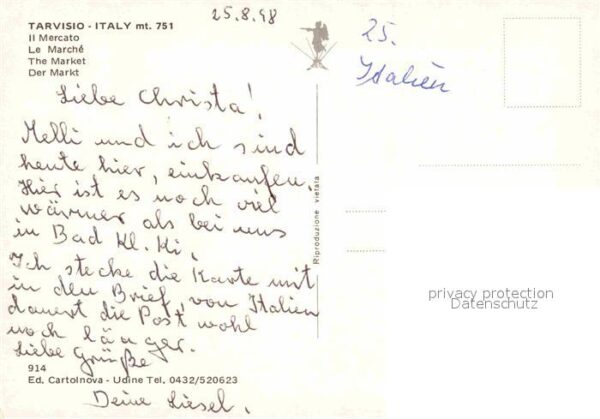 25.8.98
TARVISIO - ITALY mt. 751
Il Mercato
Le Marché
The Market
Der Markt
25.
Italien
Liebe Christa!
Melli und ich sind
heute hier, einkaufen.
Hier ist es noch viel
wärmer als bei uns
in Bad Kl. Ki.
Ich stecke die Karte mit
in den Brief, von Italien
dauert die Post wohl
noch länger.
Liebe Grüße
Deine Liesel.
Riproduzione vietata
privacy protection
Datenschutz
914
Ed. Cartolnova - Udine Tel. 0432/520623